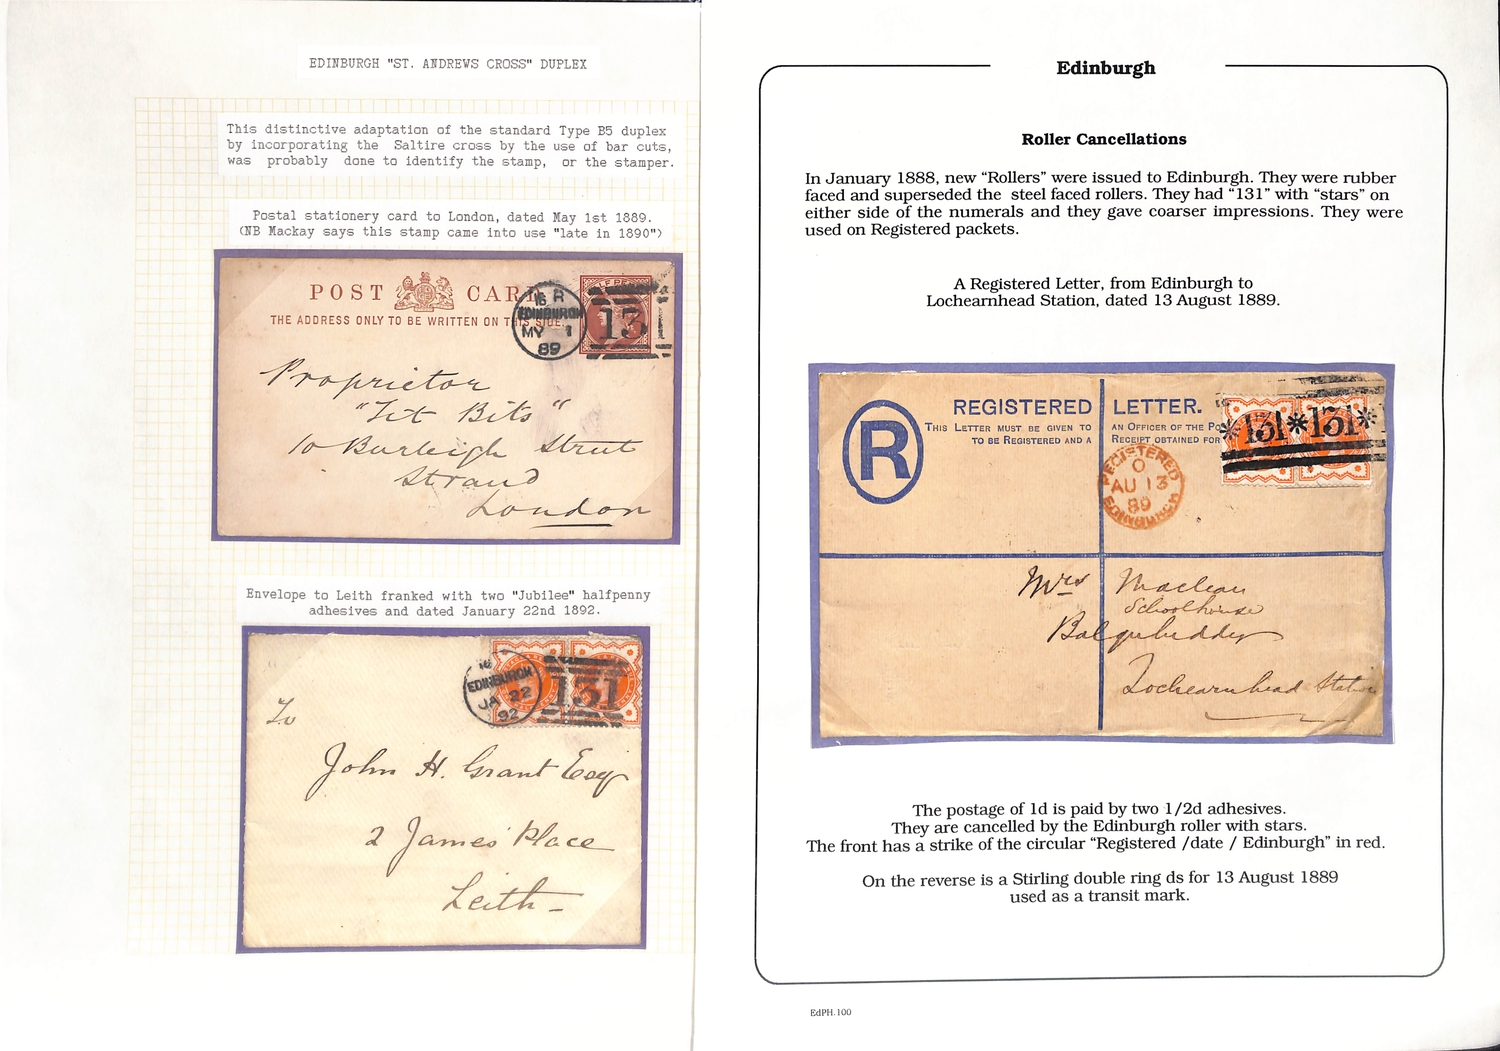 EDINBURGH "ST. ANDREWS CROSS" DUPLEX
This distinctive adaptation of the standard Type B5 duplex
by incorporating the Saltire cross by the use of bar cuts,
was probably done to identify the stamp, or the stamper.
Postal stationery card to London, dated May 1st 1889.
(NB Mackay says this stamp came into use "late in 1890")
POST CARD
THE ADDRESS ONLY TO BE WRITTEN ON THIS SIDE.
16 R
EDINBURGH
MY 1
89
131
Proprietor
"Tit Bits"
10 Burleigh Street
Strand
London
Envelope to Leith franked with two "Jubilee" halfpenny
adhesives and dated January 22nd 1892.
16
EDINBURGH
JA 22
92
131
To
John H. Grant Esq
2 James' Place
Leith
Edinburgh
Roller Cancellations
In January 1888, new “Rollers” were issued to Edinburgh. They were rubber
faced and superseded the steel faced rollers. They had “131” with “stars” on
either side of the numerals and they gave coarser impressions. They were
used on Registered packets.
A Registered Letter, from Edinburgh to
Lochearnhead Station, dated 13 August 1889.
R
REGISTERED LETTER.
THIS LETTER MUST BE GIVEN TO AN OFFICER OF THE PO
TO BE REGISTERED AND A RECEIPT OBTAINED FOR
*131*131*
REGISTERED
O
AU 13
89
EDINBURGH
Mrs Maclean
Schoolhouse
Balquhidder
Lochearnhead Station
The postage of 1d is paid by two 1/2d adhesives.
They are cancelled by the Edinburgh roller with stars.
The front has a strike of the circular “Registered /date / Edinburgh” in red.
On the reverse is a Stirling double ring ds for 13 August 1889
used as a transit mark.
EdPH.100